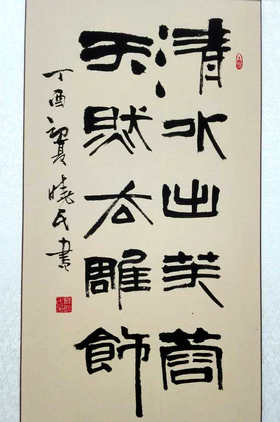 清水出芙蓉
天然去雕飾
丁酉初夏晓民書